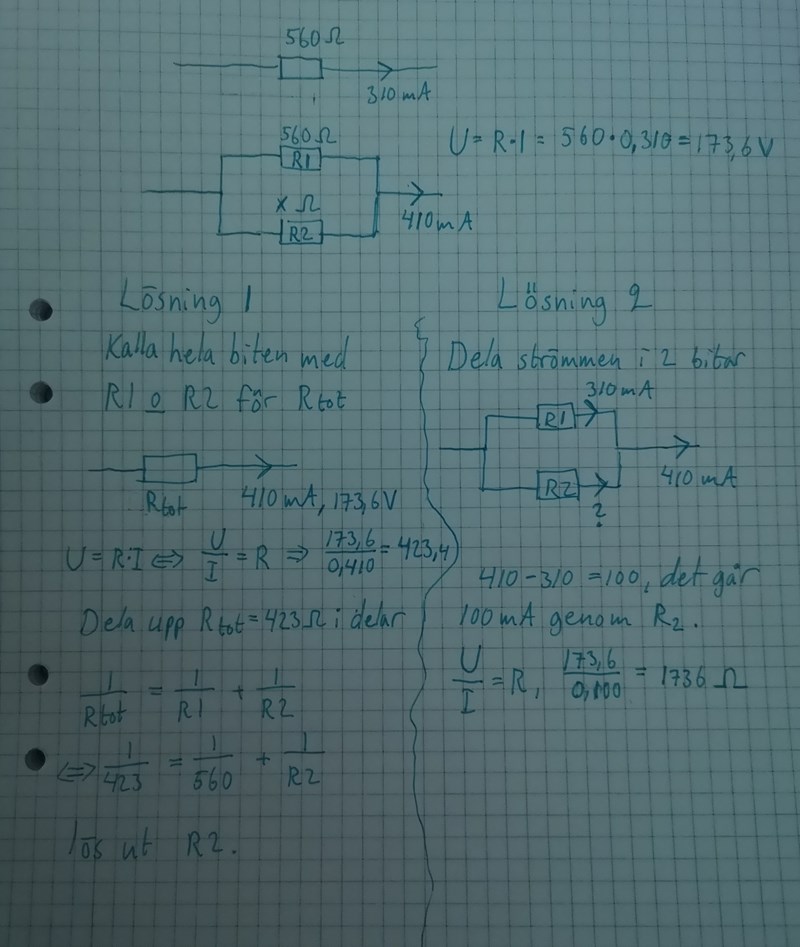 560 Ω
310 mA
560 Ω
R1
U = R·I = 560·0,310 = 173,6 V
x Ω
R2
410 mA
Lösning 1
Kalla hela biten med
R1 o R2 för Rtot
Rtot
410 mA, 173,6V
U = R·I ⇔ U/I = R ⇒ 173,6/0,410 = 423,4
Dela upp Rtot = 423 Ω i delar
1/Rtot = 1/R1 + 1/R2
⇔ 1/423 = 1/560 + 1/R2
lös ut R2.
Lösning 2
Dela strömmen i 2 bitar
310 mA
R1
410 mA
R2
?
410 - 310 = 100, det går
100 mA genom R2.
U/I = R, 173,6/0,100 = 1736 Ω